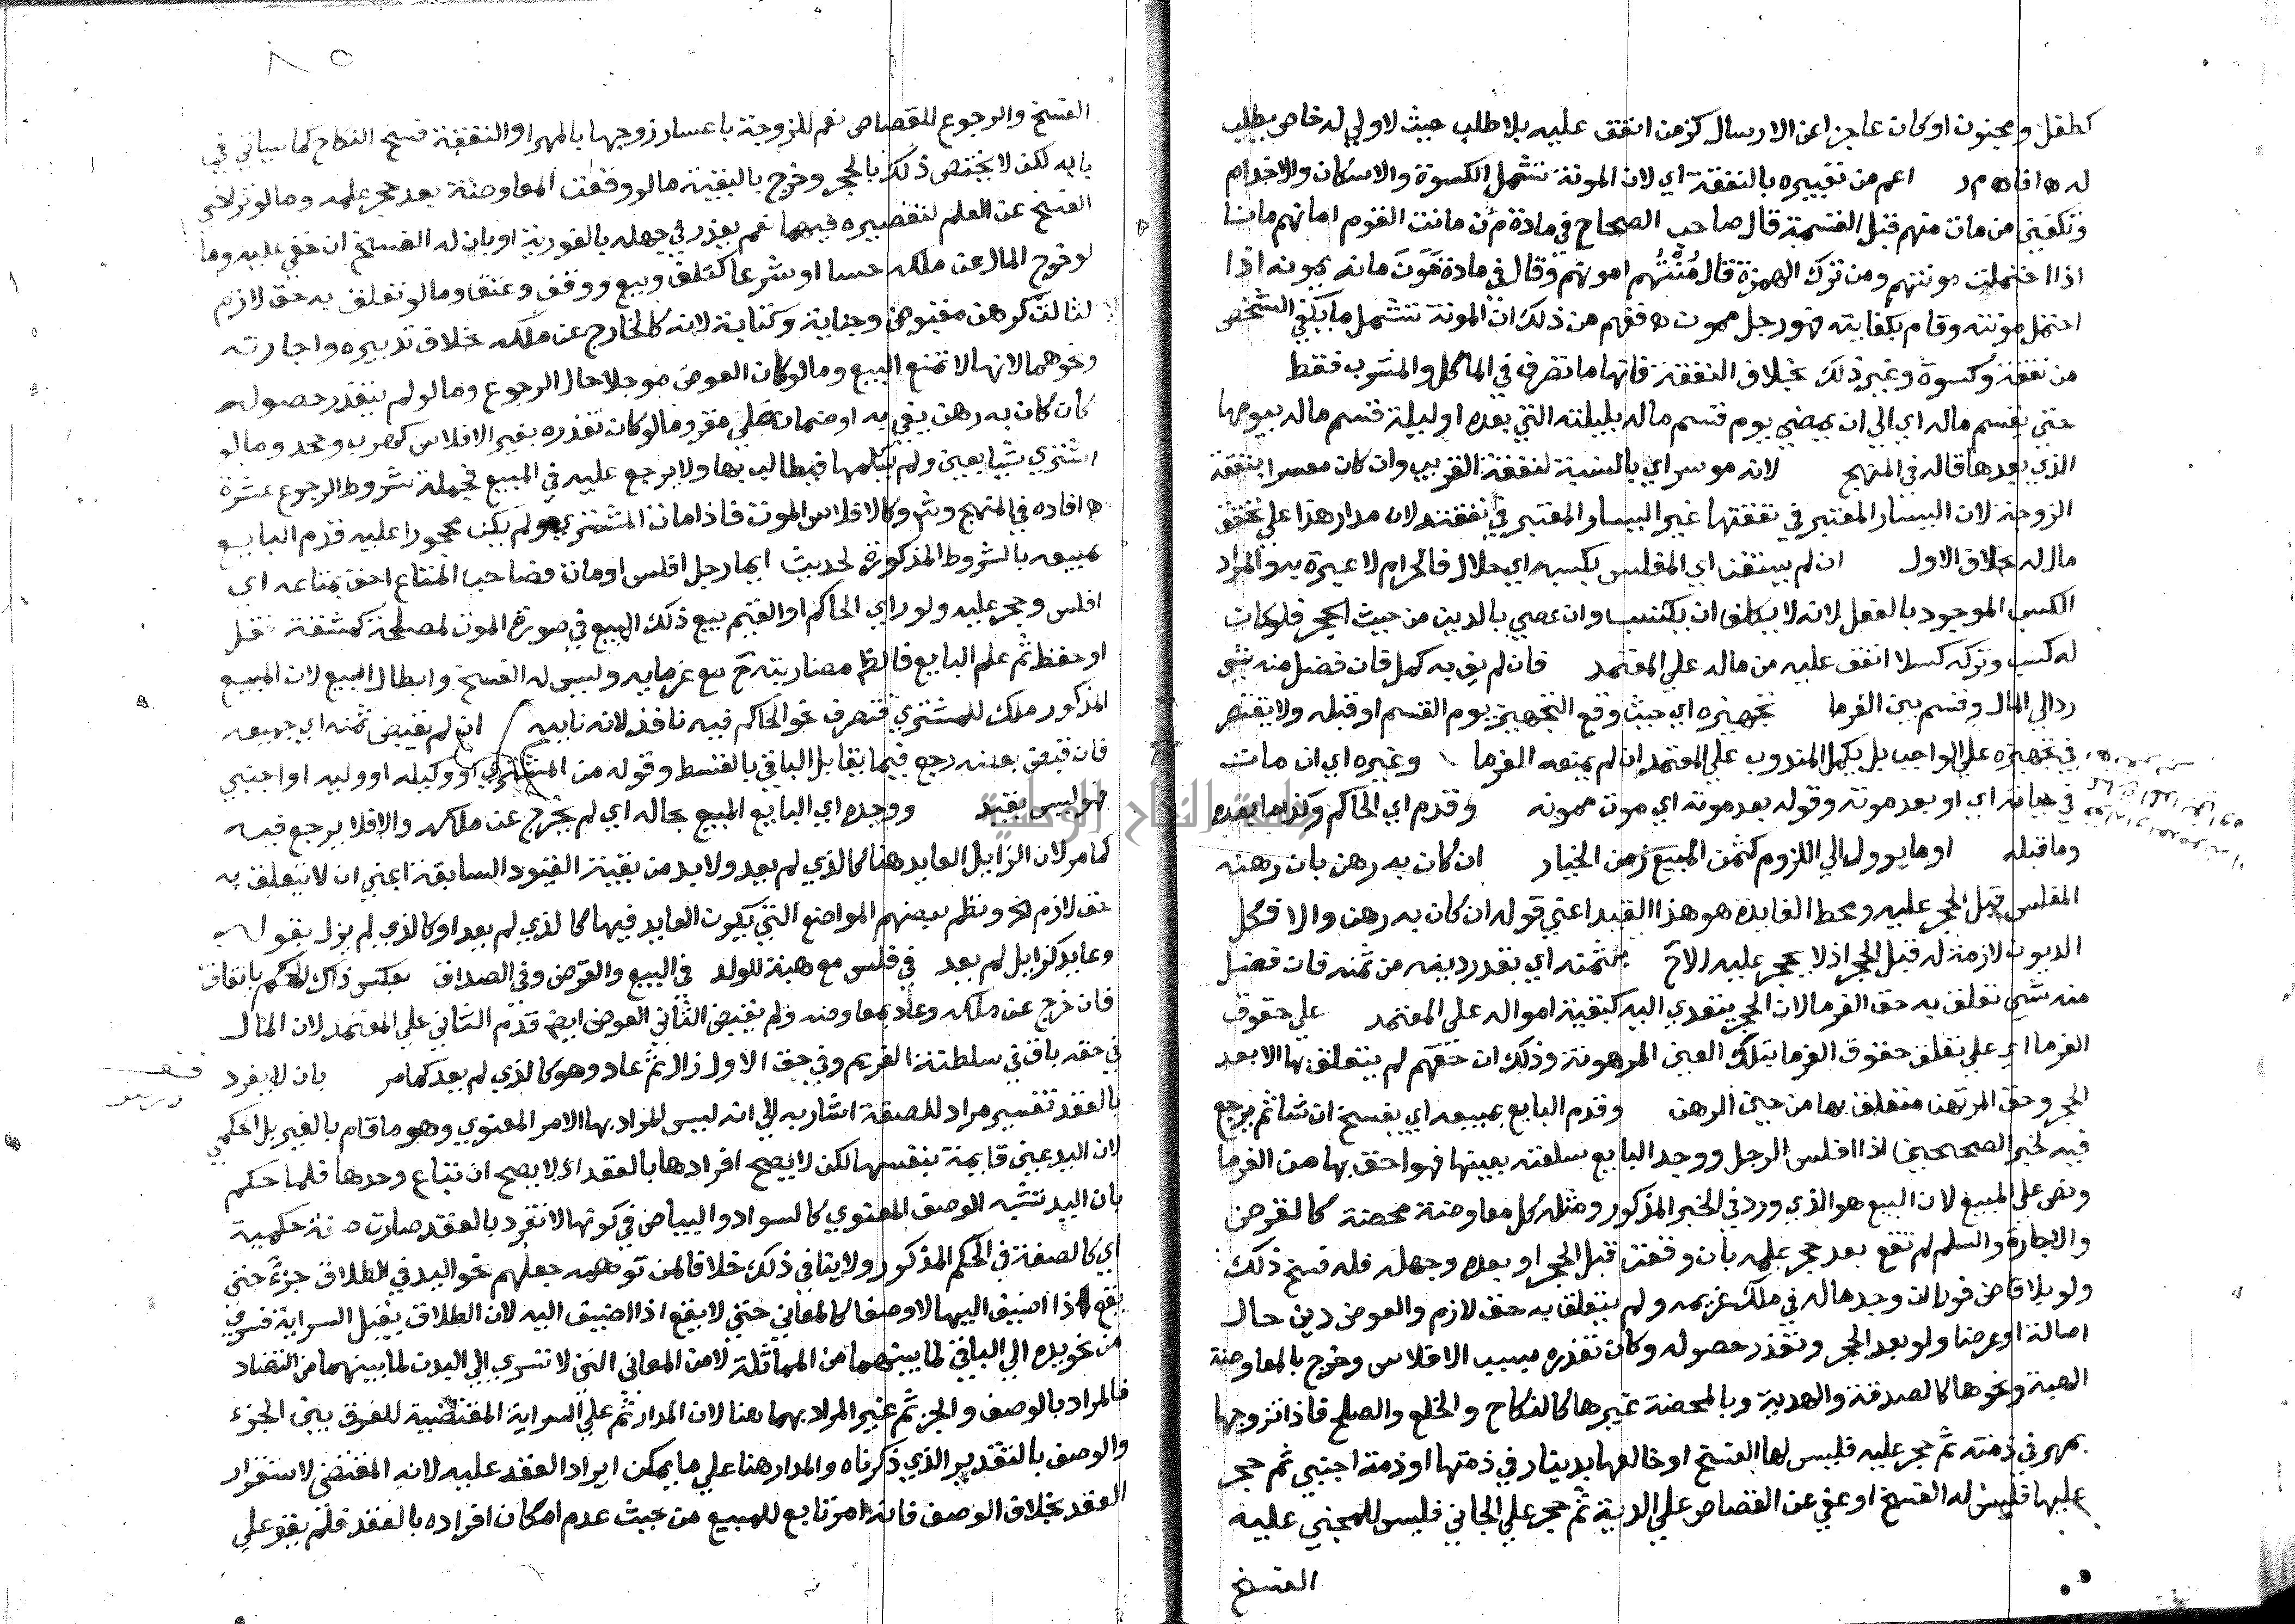 كطفل ومجنون او كان عاجزا عن الارسال كزمن انفق عليه بلا طلب حيث لا ولي له خاص يطلب
له ه افاده م ر اعم من تعبيره بالنفقة اي لان المونة تشمل الكسوة والاسكان والاخدام
وتكفين من مات منهم قبل القسمة قال صاحب الصحاح في مادة م ئ ن مانت القوم امانهم مانا
اذا احتملت مونتهم ومن ترك الهمزة قال مُنْتُهم امونهم وقال في مادة مَوَنَ مانه يمونه اذا
احتمل مونته وقام بكفايته فهو رجل ممون ه ففهم من ذلك ان المونة تشمل ما يكفي الشخص
من نفقة وكسوة وغير ذلك بخلاف النفقة فانها ما تصرف في الماكل والمشرب فقط
حتى يقسم ماله اي الى ان يمضي يوم قسم ماله بليلته التي بعده او ليلة قسم ماله بيومها
الذي بعدها قاله في المنهج لانه موسر اي بالنسبة لنفقة القريب وان كان معسرا بنفقة
الزوجة لان اليسار المعتبر في نفقتها غير اليسار المعتبر في نفقته لان مدار هذا على تحقق
مال له بخلاف الاول ان لم يستغن اي المفلس بكسبه اي حلال فالحرام لا عبرة به والمراد
الكسب الموجود بالفعل لانه لا يكلف ان يكتسب وان عصي بالدين من حيث الحجر فلو كان
له كسب وتركه كسلا انفق عليه من ماله على المعتمد فان لم يف به كمل فان فضل منه شي
رد الى المال وقسم بين الغرما تجهيزه اي حيث وقع التجهيز يوم القسم او قبله ولا يقتصر
في تجهيزه على الواجب بل يكمل المندوب على المعتمد ان لم يمنعه الغرما وغيره اي ان مات
في حياته اي او بعد موته وقوله بعد موته اي موت ممونه وقدم اي الحاكم وكذا ما بعده
وما قبله او ما يوول الى اللزوم كثمن المبيع زمن الخيار ان كان به رهن بان رهنه
المفلس قبل الحجر عليه ومحط الفايدة هو هذا القيد اعني قوله ان كان به رهن والا فكل
الديون لازمة له قبل الحجر اذ لا يحجر عليه الا بثمنه اي بقدر دينه من ثمنه فان فضل
منه شي تعلق به حق الغرما لان الحجر يتعدي اليه كبقية امواله على المعتمد على حقوق
الغرما اي على تعلق حقوق الغرما بتلك العين المرهونة وذلك ان حقهم لم يتعلق بها الا بعد
الحجر وحق المرتهن متعلق بها من حين الرهن وقدم البايع بمبيعه اي يفسخ ان شا ثم يرجع
فيه لخبر الصحيحين اذا افلس الرجل ووجد البايع سلعته بعينها فهو احق بها من الغرما
ونص على المبيع لان البيع هو الذي ورد في الخبر المذكور ومثله كل معاوضة محضة كالقرض
والاجارة والسلم لم تقع بعد حجر علمه بان وقعت قبل الحجر او بعده وجهله فله فسخ ذلك
ولو بلا قاض فورا ان وجد ماله في ملك غريمه ولم يتعلق به حق لازم والعوض دين حال
اصالة او عرضا ولو بعد الحجر وتعذر حصوله وكان تعذره بسبب الافلاس وخرج بالمعاوضة
الهبة ونحوها كالصدقة والهدية وبالمحضة غيرها كالنكاح والخلع والصلح فاذا تزوجها
بمهر في ذمته ثم حجر عليه فليس لها الفسخ او خالعها بدينار في ذمتها او ذمة اجنبي ثم حجر
عليها فليس له الفسخ او عفي عن القصاص على الدية ثم حجر على الجاني فليس للمجني عليه
الفسخ
٨٥
الفسخ والرجوع للقصاص نعم للزوجة باعسار زوجها بالمهر او النفقة فسخ النكاح كما سياتي في
بابه لكن لا يختص ذلك بالحجر وخرج بالبقية ما لو وقعت المعاوضة بعد حجر علمه وما لو تراخى
الفسخ عن العلم لتقصيره فيهما نعم يعذر في جهله بالفورية او بان له الفسخ ان خفي عليه وما
لو خرج المال عن ملكه حسا او شرعا كتلف وبيع ووقف وعتق وما لو تعلق به حق لازم
لثالث كرهن مقبوض وجناية وكتابة لانه كالخارج عن ملكه بخلاف تدبيره واجارته
ونحوهما لانها لا تمنع البيع وما لو كان العوض موجلا حال الرجوع وما لو لم يتعذر حصوله
كان كان به رهن يفي به او ضمان ملي مقر وما لو كان تعذره بغير الافلاس كهرب وجحد وما لو
اشترى شيا بعين ولم يسلمها فيطالب بها ولا يرجع عليه في المبيع فجملة شروط الرجوع عشرة
ه افاده في المنهج وش وكالافلاس الموت فاذا مات المشتري ولم يكن محجورا عليه قدم البايع
بمبيعه بالشروط المذكورة لحديث ايما رجل افلس او مات فصاحب المتاع احق بمتاعه اي
افلس وحجر عليه ولو راي الحاكم او القيم بيع ذلك المبيع في صورة الموت لمصلحة كمشقة نقل
او حفظ ثم علم البايع فالظ مضاربته مع غرمايه وليس له الفسخ وابطال البيع لان المبيع
المذكور ملك للمشتري فتصرف نحو الحاكم فيه نافذ لانه نايبه ان لم يقبض ثمنه اي جميعه
فان قبض بعضه رجع فيما يقابل الباقي بالقسط وقوله من المشتري او وكيله او وليه او اجنبي
فهو ليس بقيد ووجده اي البايع المبيع بحاله اي لم يخرج عن ملكه والا فلا يرجع فيه
كما مر لان الزايل العايد هنا كالذي لم يعد ولا بد من بقية القيود السابقة اعني ان لا يتعلق به
حق لازم الخ ونظم بعضهم المواضع التي يكون العايد فيها كالذي لم يعد او كالذي لم يزل بقوله
وعايد كزايل لم يعد في فلس مع هبة للولد في البيع والقرض وفي الصداق بعكس ذاك الحكم باتفاق
فان خرج عن ملكه وعاد بمعاوضه ولم يقبض الثاني العوض ايض قدم الثاني على المعتمد لان المال
في حقه باق في سلطنة الغريم وفي حق الاول زال ثم عاد وهو كالذي لم يعد كما مر بان لا يفرد
بالعقد تفسير مراد للصفة اشار به الى انه ليس المراد بها الامر المعنوي وهو ما قام بالغير بل الحكمي
لان اليد عين قايمة بنفسها لكن لا يصح افرادها بالعقد اي لا يصح ان تباع وحدها فلما حكم
بان اليد تشبه الوصف المعنوي كالسواد والبياض في كونها لا تفرد بالعقد صارت صفة حكمية
اي كالصفة في الحكم المذكور ولا ينافي ذلك خلافا لمن توهمه جعلهم نحو اليد في الطلاق جزءً حتى
يقع اذا اضيف اليها لا وصفا كالمعاني حتى لا يقع اذا اضيف اليه لان الطلاق يقبل السراية فسرى
من نحو يده الى الباقي لما بينهما من المماثلة لا من المعاني التي لا تسري الى البدن لما بينهما من التضاد
فالمراد بالوصف والجزء ثم غير المراد بهما هنا لان المدار ثم على السراية المقتضية للفرق بين الجزء
والوصف بالتقدير الذي ذكرناه والمدار هنا على ما يمكن ايراد العقد عليه لانه المقتضى لاستقرار
العقد بخلاف الوصف فانه امر تابع للمبيع من حيث عدم امكان افراده بالعقد فلم يقو على